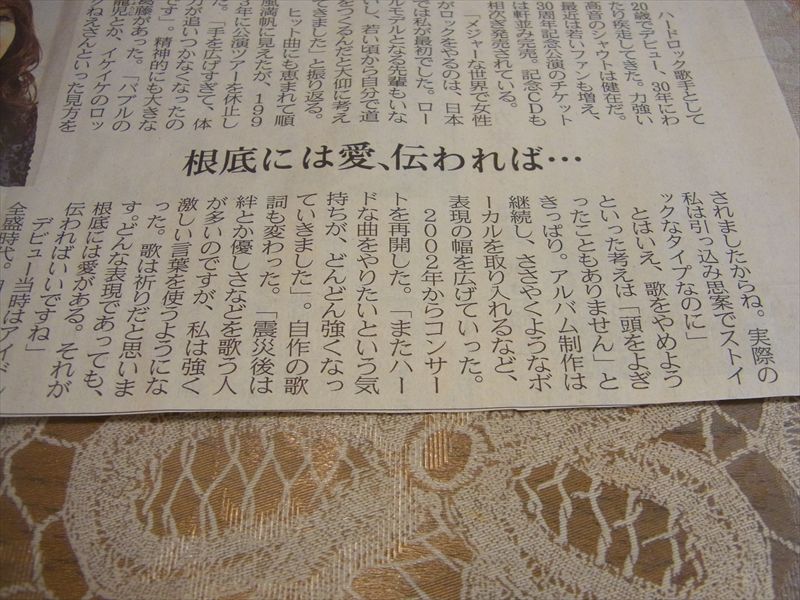 ハードロック歌手として
20歳でデビュー、30年にわ
たり疾走してきた。力強い
高音のシャウトは健在だ。
最近は若いファンも増え、
30周年記念公演のチケット
は軒並み完売。記念CDも
相次ぎ発売されている。
「メジャーな世界で女性
がロックをやるのは、日本
では私が最初でした。ロー
ルモデルとなる先輩もいな
いし、若い頃から自分で道
をつくるんだと大仰に考え
てきました」と振り返る。
ヒット曲にも恵まれて順
風満帆に見えたが、199
3年に公演ツアーを休止し
「手を広げすぎて、体
力が追いつかなくなったの
です」。精神的にも大きな
葛藤があった。「バブルの
寵児とか、イケイケのロッ
クねえさんといった見方を
根底には愛、伝われば…
されましたからね。実際の
私は引っ込み思案でストイ
ックなタイプなのに」
とはいえ、歌をやめよう
といった考えは「頭をよぎ
ったこともありません」と
きっぱり。アルバム制作は
継続し、ささやくようなボ
ーカルを取り入れるなど、
表現の幅を広げていった。
2002年からコンサー
トを再開した。「またハー
ドな曲をやりたいという気
持ちが、どんどん強くなっ
ていきました」。自作の歌
詞も変わった。「震災後は
絆とか優しさなどを歌う人
が多いのですが、私は強く
激しい言葉を使うようにな
った。歌は祈りだと思いま
す。どんな表現であっても、
根底には愛がある。それが
伝わればいいですね」
デビュー当時はアイドル
全盛時代。